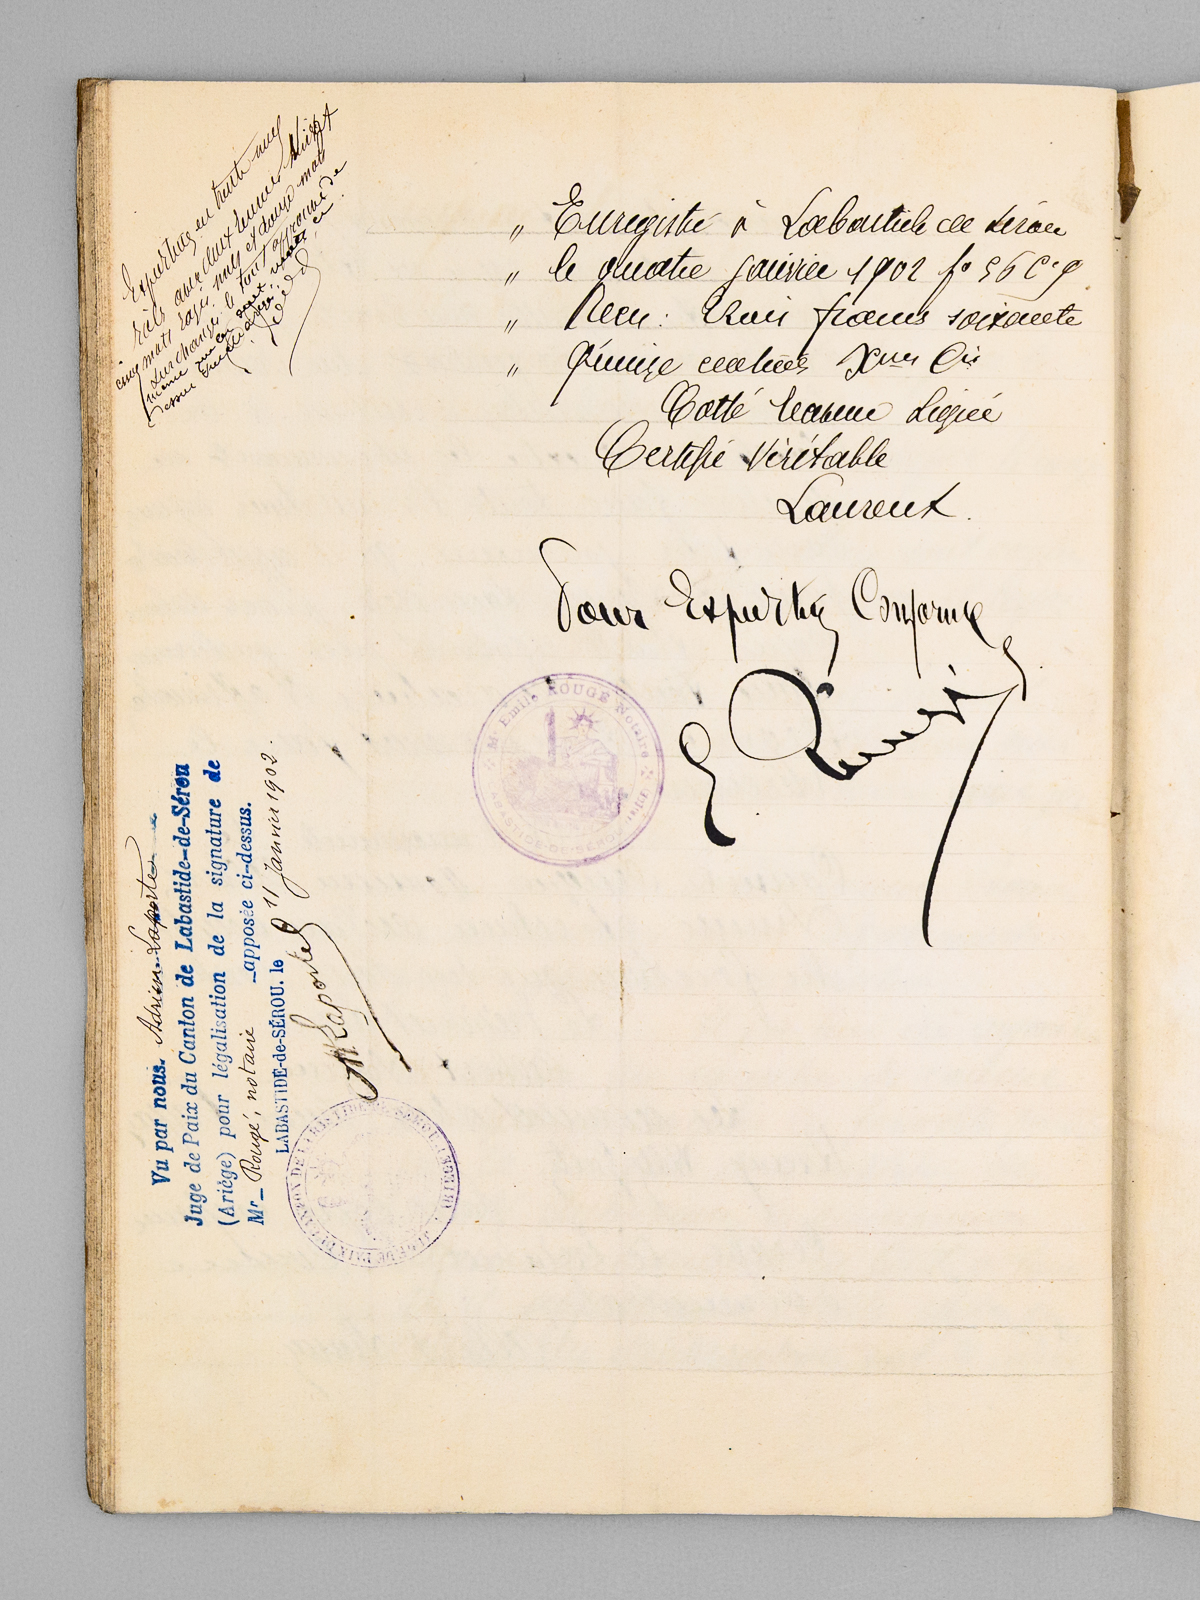 Expertise en trente nuf
rôles avec deux renvois
cinq mots rayés nuls et douze mots
surchargés le tout approuvé de
même
„ Enregistré à Labastide de Sérou
„ le quatre janvier 1902 f° 56 C. 9
„ Reçu : trois francs soixante
„ quinze centimes
Cotté Receveur Signé
Certifié Véritable
Laurent.
Pour Expertise Conforme
E Rougé
Me Emile ROUGÉ Notaire
LABASTIDE-DE-SÉROU ARIÈGE
Vu par nous. Adrien Laporte
Juge de Paix du Canton de Labastide-de-Sérou
(Ariège) pour légalisation de la signature de
Mr_ Rougé, notaire _apposée ci-dessus.
LABASTIDE-de-SÉROU. le 11 janvier 1902.
Laporte
JUGE DE PAIX DU CANTON DE LABASTIDE DE SEROU (ARIÈGE)